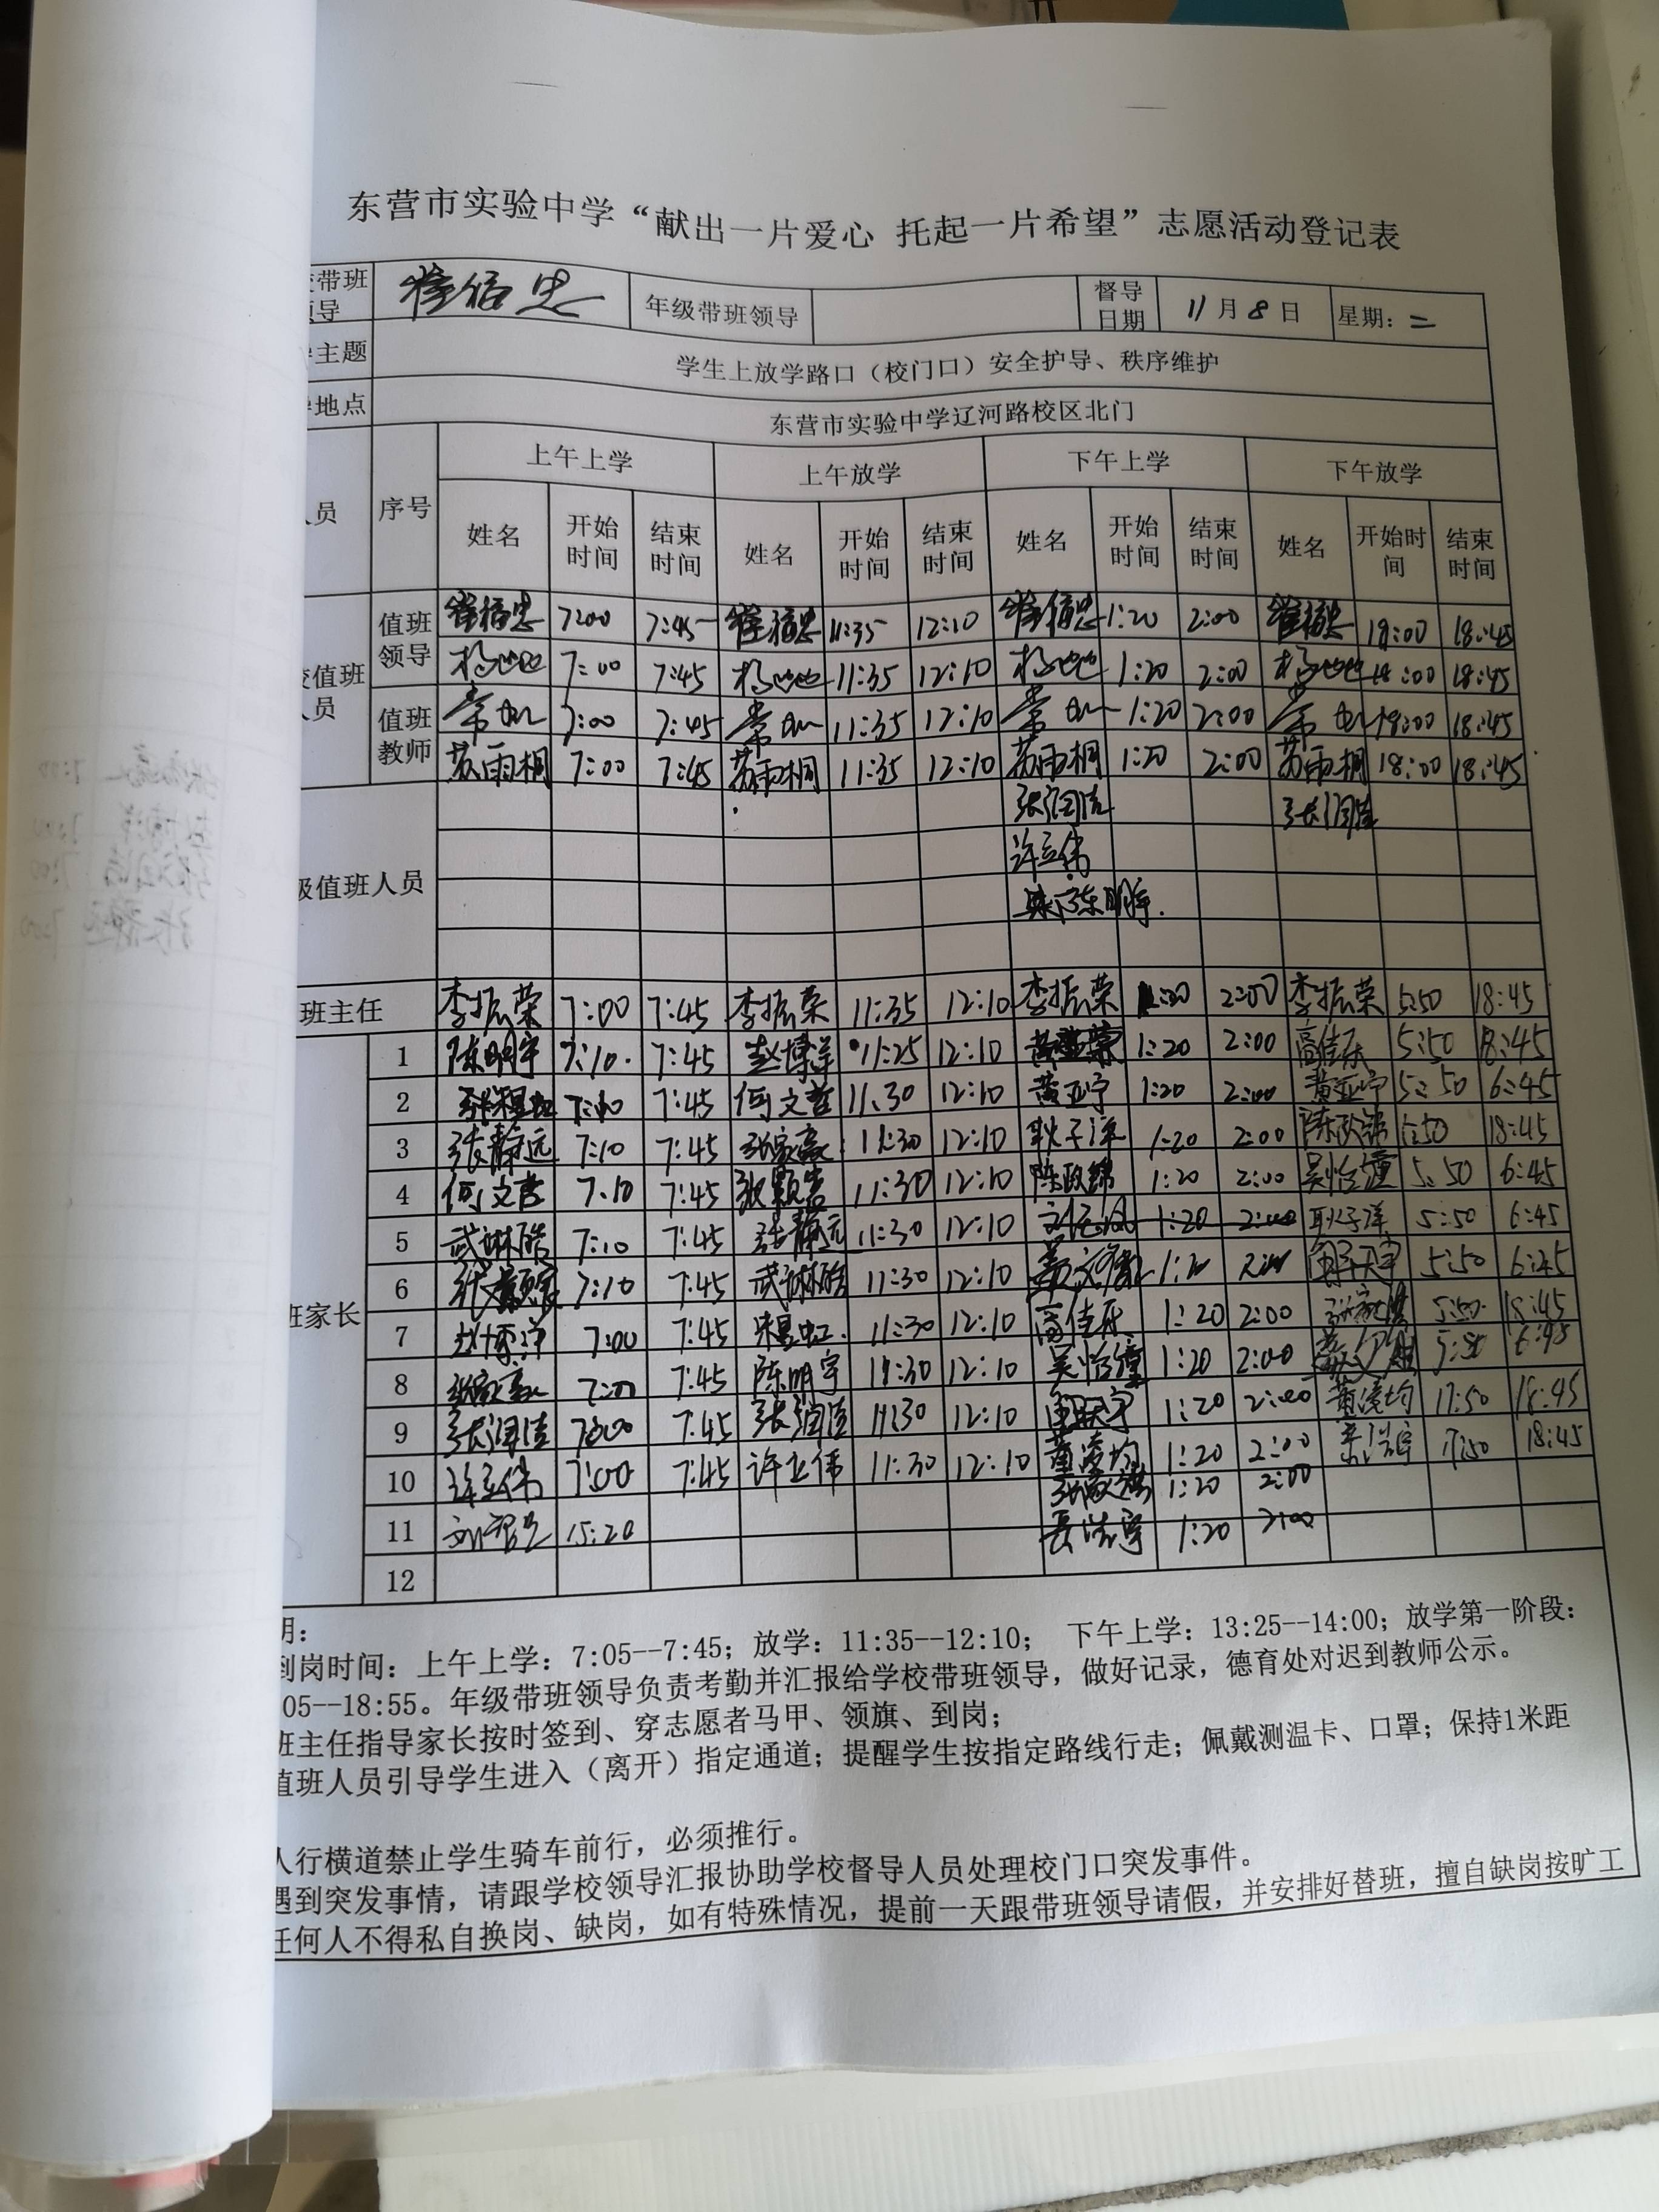 东营市实验中学“献出一片爱心 托起一片希望”志愿活动登记表
带班 崔信忠 年级带班领导 督导 11月8日 星期:二
导 日期
主题 学生上放学路口（校门口）安全护导、秩序维护
地点 东营市实验中学辽河路校区北门
员 序号 上午上学 上午放学 下午上学 下午放学
姓名 开始时间 结束时间 姓名 开始时间 结束时间 姓名 开始时间 结束时间 姓名 开始时间 结束时间
值班领导 崔信忠 7:00 7:45 崔信忠 11:35 12:10 崔信忠 1:20 2:00 崔信忠 18:00 18:45
值班 7:00 7:45 11:35 12:10 1:20 2:00 18:00 18:45
员 值班教师 7:00 7:45 11:35 12:10 1:20 2:00 18:00 18:45
苏雨桐 7:00 7:45 苏雨桐 11:35 12:10 苏雨桐 1:20 2:00 苏雨桐 18:00 18:45
级值班人员 张润洁 张润洁
许立伟
陈明宇
班主任 李振荣 7:00 7:45 李振荣 11:35 12:10 李振荣 1:20 2:00 李振荣 5:50 18:45
1 陈明宇 7:10 7:45 赵博洋 11:25 12:10 1:20 2:00 高佳乐 5:50 18:45
2 7:10 7:45 何文哲 11:30 12:10 黄亚宁 1:20 2:00 黄亚宁 5:50 6:45
3 张静远 7:10 7:45 张家豪 11:30 12:10 耿子洋 1:20 2:00 陈政锦 5:50 18:45
4 何文哲 7:10 7:45 11:30 12:10 陈政锦 1:20 2:00 吴怡萱 5:50 6:45
5 武琳皓 7:10 7:45 张静远 11:30 12:10 1:20 2:00 耿子洋 5:50 6:45
6 7:10 7:45 武琳皓 11:30 12:10 5:50 6:45
班家长 7 赵博洋 7:00 7:45 11:30 12:10 高佳乐 1:20 2:00 18:45
8 张家豪 7:00 7:45 陈明宇 11:30 12:10 吴怡萱 1:20 2:00 6:45
9 张润洁 7:00 7:45 张润洁 11:30 12:10 1:20 2:00 董凌均 17:50 18:45
10 许立伟 7:00 7:45 许立伟 11:30 12:10 董凌均 1:20 2:00 17:50 18:45
1:20 2:00
11 15:20 1:20 2:00
12
明：
到岗时间：上午上学：7:05--7:45；放学：11:35--12:10； 下午上学：13:25--14:00；放学第一阶段：
05--18:55。年级带班领导负责考勤并汇报给学校带班领导，做好记录，德育处对迟到教师公示。
班主任指导家长按时签到、穿志愿者马甲、领旗、到岗；
值班人员引导学生进入（离开）指定通道；提醒学生按指定路线行走；佩戴测温卡、口罩；保持1米距
人行横道禁止学生骑车前行，必须推行。
遇到突发事情，请跟学校领导汇报协助学校督导人员处理校门口突发事件。
任何人不得私自换岗、缺岗，如有特殊情况，提前一天跟带班领导请假，并安排好替班，擅自缺岗按旷工